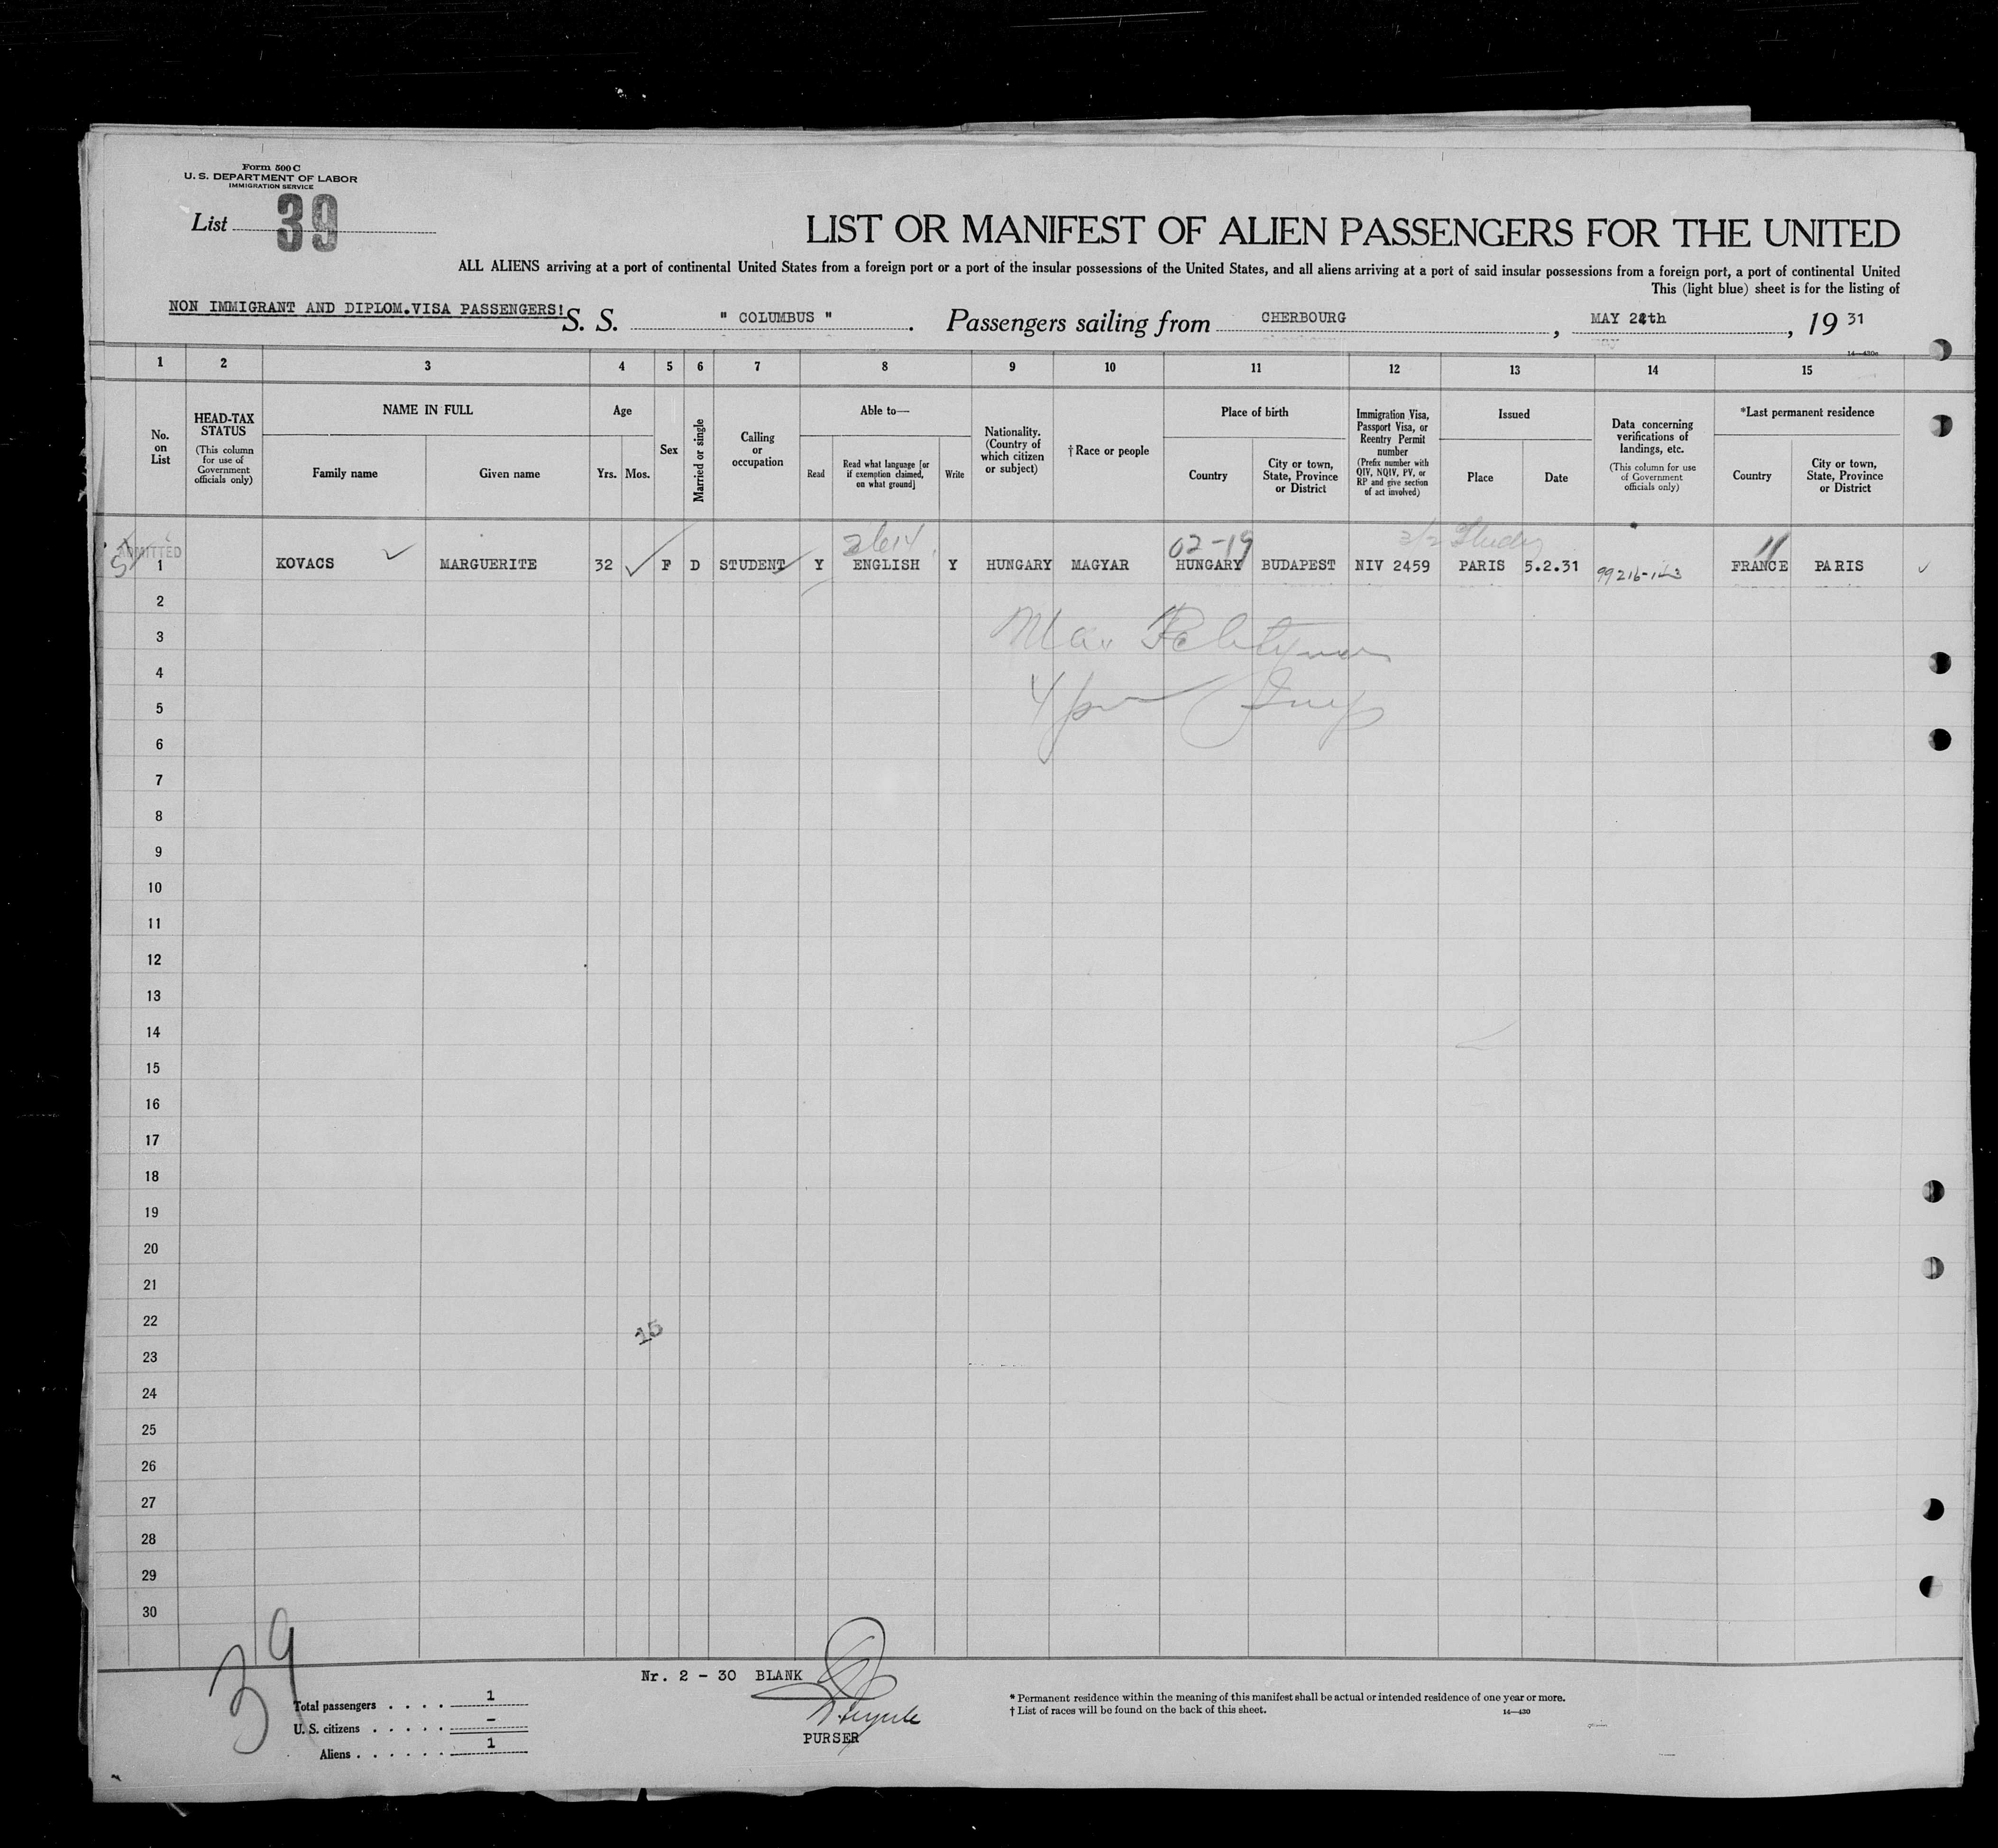 Form 500 C
U. S. DEPARTMENT OF LABOR
IMMIGRATION SERVICE
List 39
LIST OR MANIFEST OF ALIEN PASSENGERS FOR THE UNITED
ALL ALIENS arriving at a port of continental United States from a foreign port or a port of the insular possessions of the United States, and all aliens arriving at a port of said insular possessions from a foreign port, a port of continental United
This (light blue) sheet is for the listing of
NON IMMIGRANT AND DIPLOM.VISA PASSENGERS!
S. S. " COLUMBUS " . Passengers sailing from CHERBOURG , MAY 24th , 19 31
14—430a
1 2 3 4 5 6 7 8 9 10 11 12 13 14 15
No. on List
HEAD-TAX STATUS (This column for use of Government officials only)
NAME IN FULL
Family name
Given name
Age
Yrs. Mos.
Sex
Married or single
Calling or occupation
Able to—
Read
Read what language [or if exemption claimed, on what ground]
Write
Nationality. (Country of which citizen or subject)
† Race or people
Place of birth
Country
City or town, State, Province or District
Immigration Visa, Passport Visa, or Reentry Permit number (Prefix number with QIV, NQIV, PV, or RP and give section of act involved)
Issued
Place
Date
Data concerning verifications of landings, etc. (This column for use of Government officials only)
*Last permanent residence
Country
City or town, State, Province or District
ADMITTED
02-19
1 KOVACS MARGUERITE 32 F D STUDENT Y ENGLISH Y HUNGARY MAGYAR HUNGARY BUDAPEST NIV 2459 PARIS 5.2.31 FRANCE PARIS
2
3
4
5
6
7
8
9
10
11
12
13
14
15
16
17
18
19
20
21
22
15
23
24
25
26
27
28
29
30
39
Nr. 2 - 30 BLANK
Total passengers . . . . 1
U. S. citizens . . . . . -
Aliens . . . . . . 1
PURSER
* Permanent residence within the meaning of this manifest shall be actual or intended residence of one year or more.
† List of races will be found on the back of this sheet.
14—430